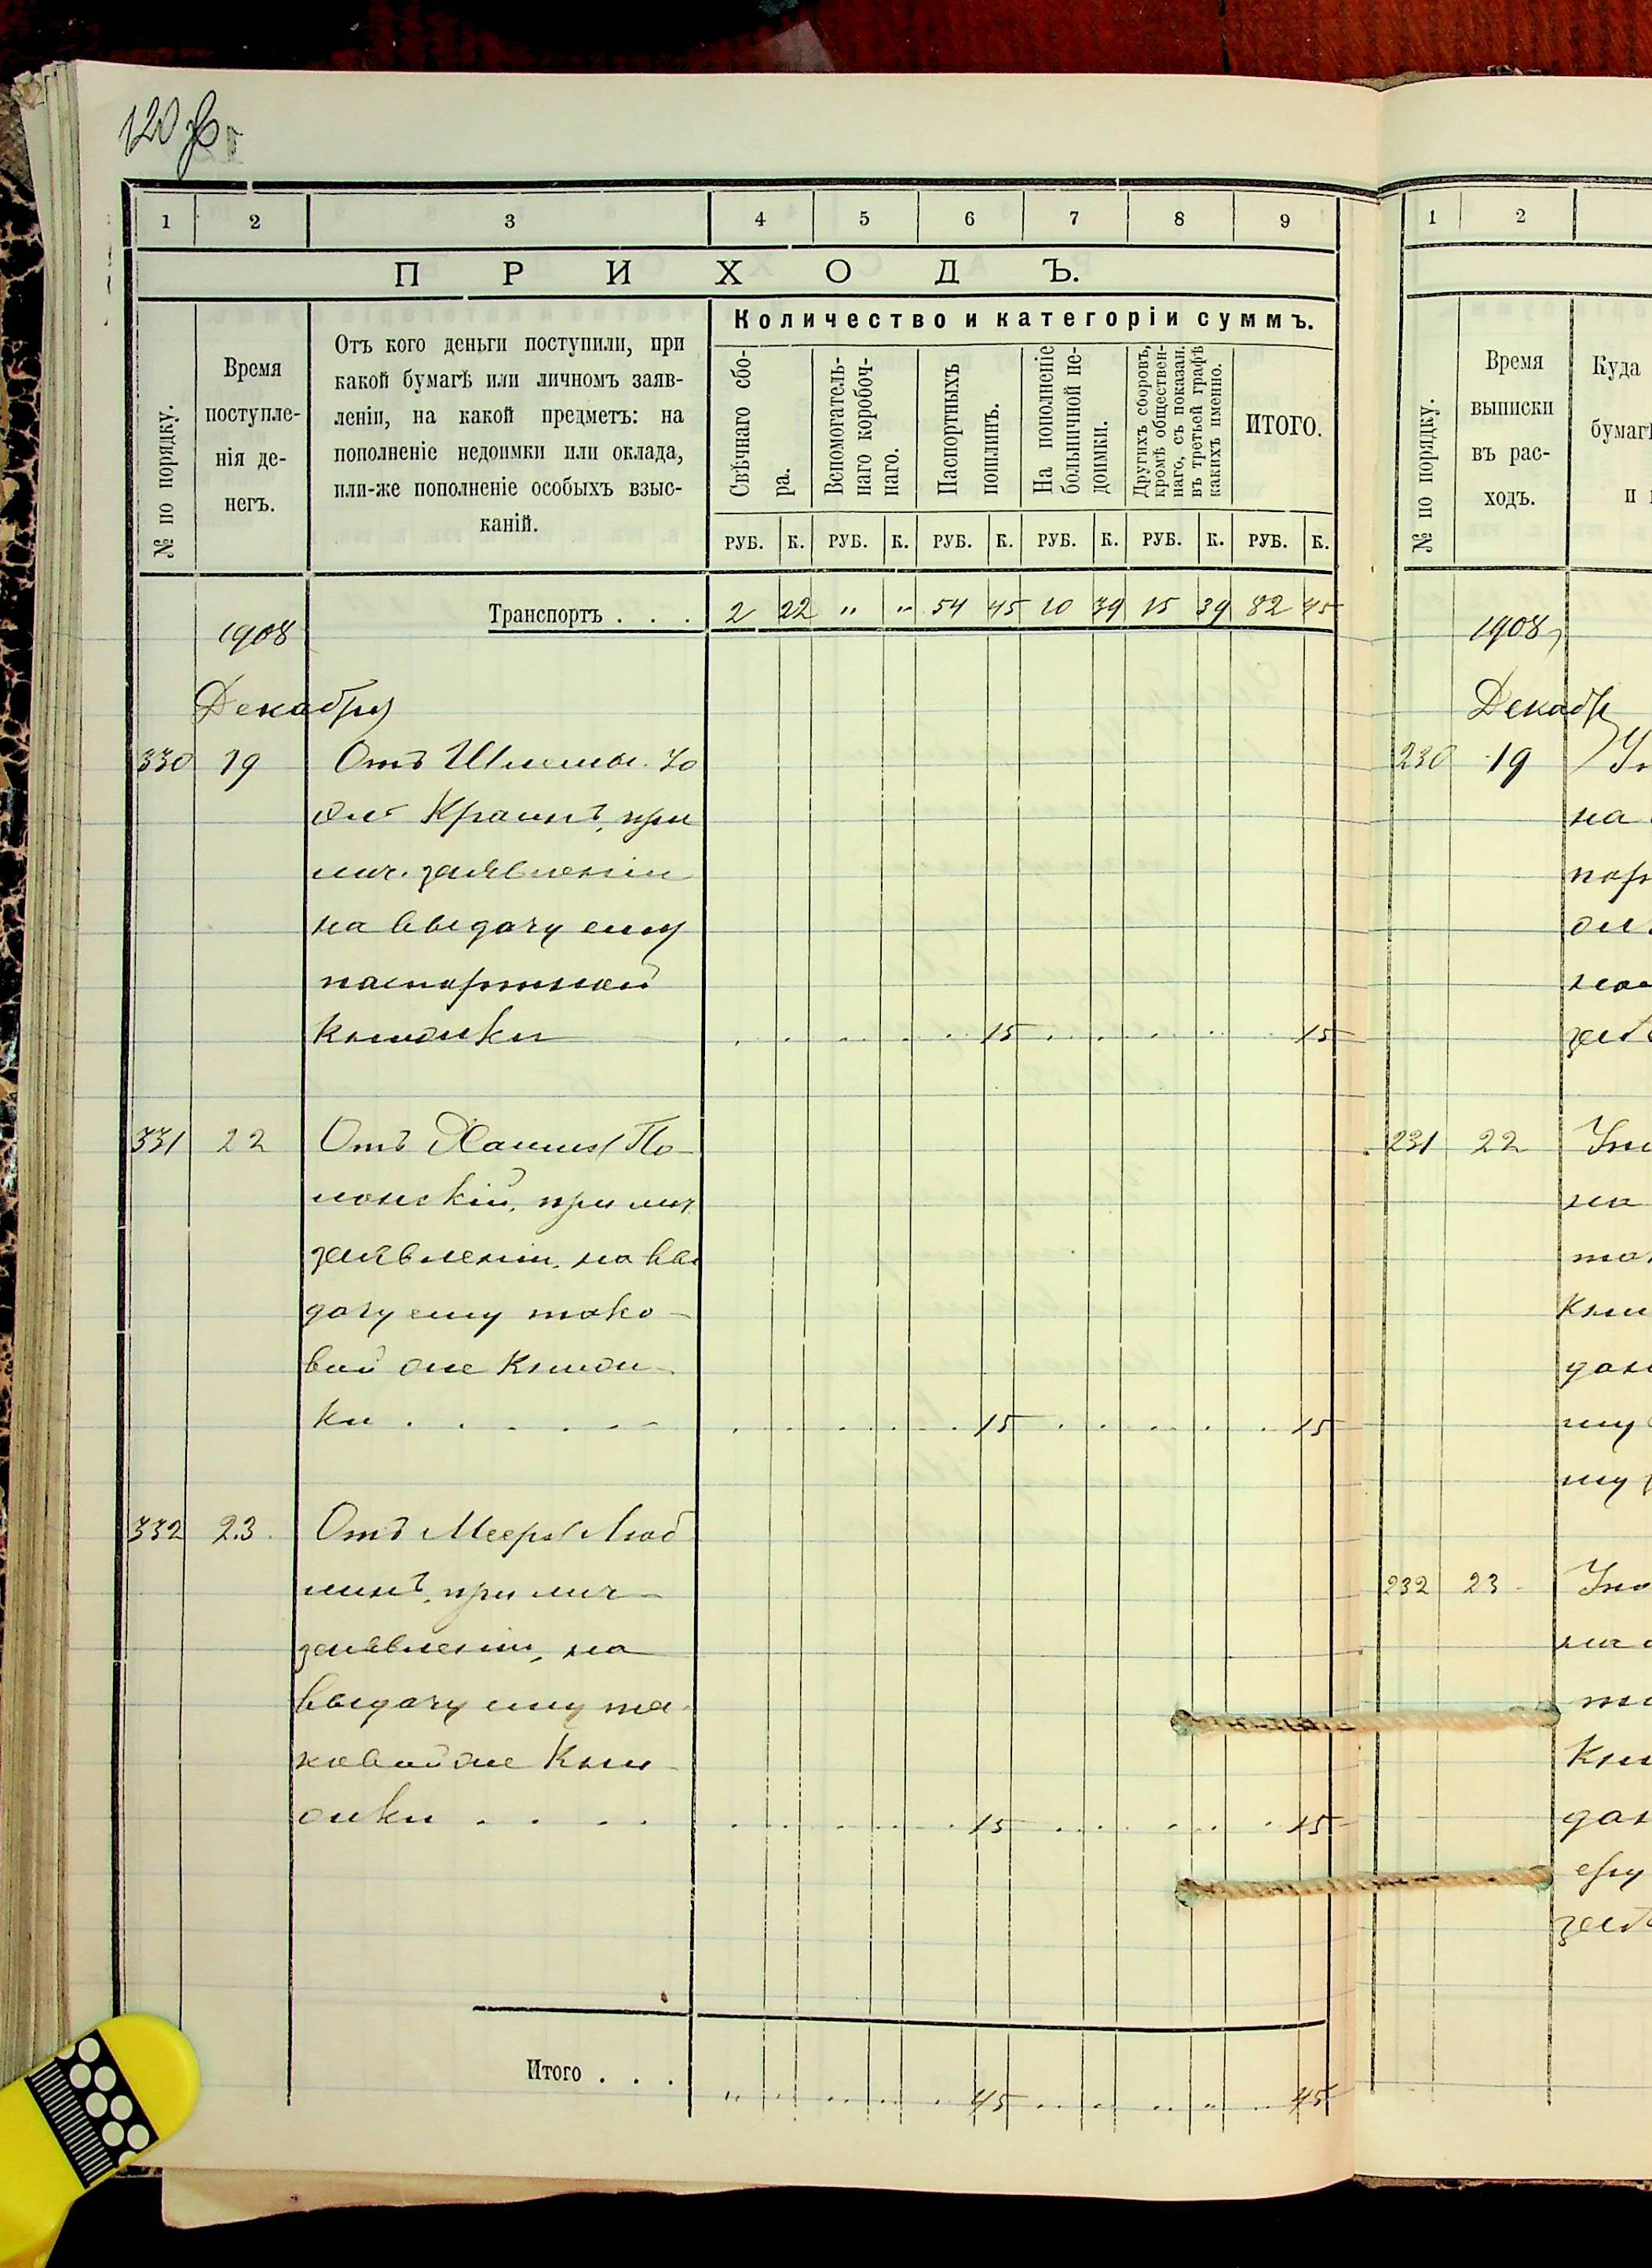 120 об
1 2 3 4 5 6 7 8 9
ПРИХОДЪ.
№ по порядку.
Время
поступле-
нія де-
негъ.
Отъ кого деньги поступили, при
какой бумагѣ или личномъ заяв-
леніи, на какой предметъ: на
пополненіе недоимки или оклада,
или-же пополненіе особыхъ взыс-
каній.
Количество и категоріи суммъ.
Свѣчнаго сбо-
ра.
Вспомогатель-
наго коробоч-
наго.
Паспортныхъ
пошлинъ.
На пополненіе
больничной не-
доимки.
Другихъ сборовъ,
кромѣ обществен-
наго, съ показан.
въ третьей графѣ
какихъ именно.
ИТОГО.
РУБ. К. РУБ. К. РУБ. К. РУБ. К. РУБ. К. РУБ. К.
Транспортъ . . . 2 22 " " 54 45 10 39 15 39 82 45
1908
Декабря
330 19 Отъ Шлемы
Краинъ, при
лич. заявленіи
на выдачу ему
паспортной
книжки 15 15
331 22 Отъ Хаима По-
лонскій, при лич.
заявленіи, на вы
дачу ему тако-
вой же книж-
ки . . . . . 15 15
332 23 Отъ Меера Люб
линъ, при лич-
заявленіи, на
выдачу ему та-
ковой же кни-
жки . . . . 15 15
Итого . . . 45 45
1 2
№ по порядку.
Время
выписки
въ рас-
ходъ.
Куда
бумаг
и
1908
Декабр
230 19
на
231 22
на
232 23